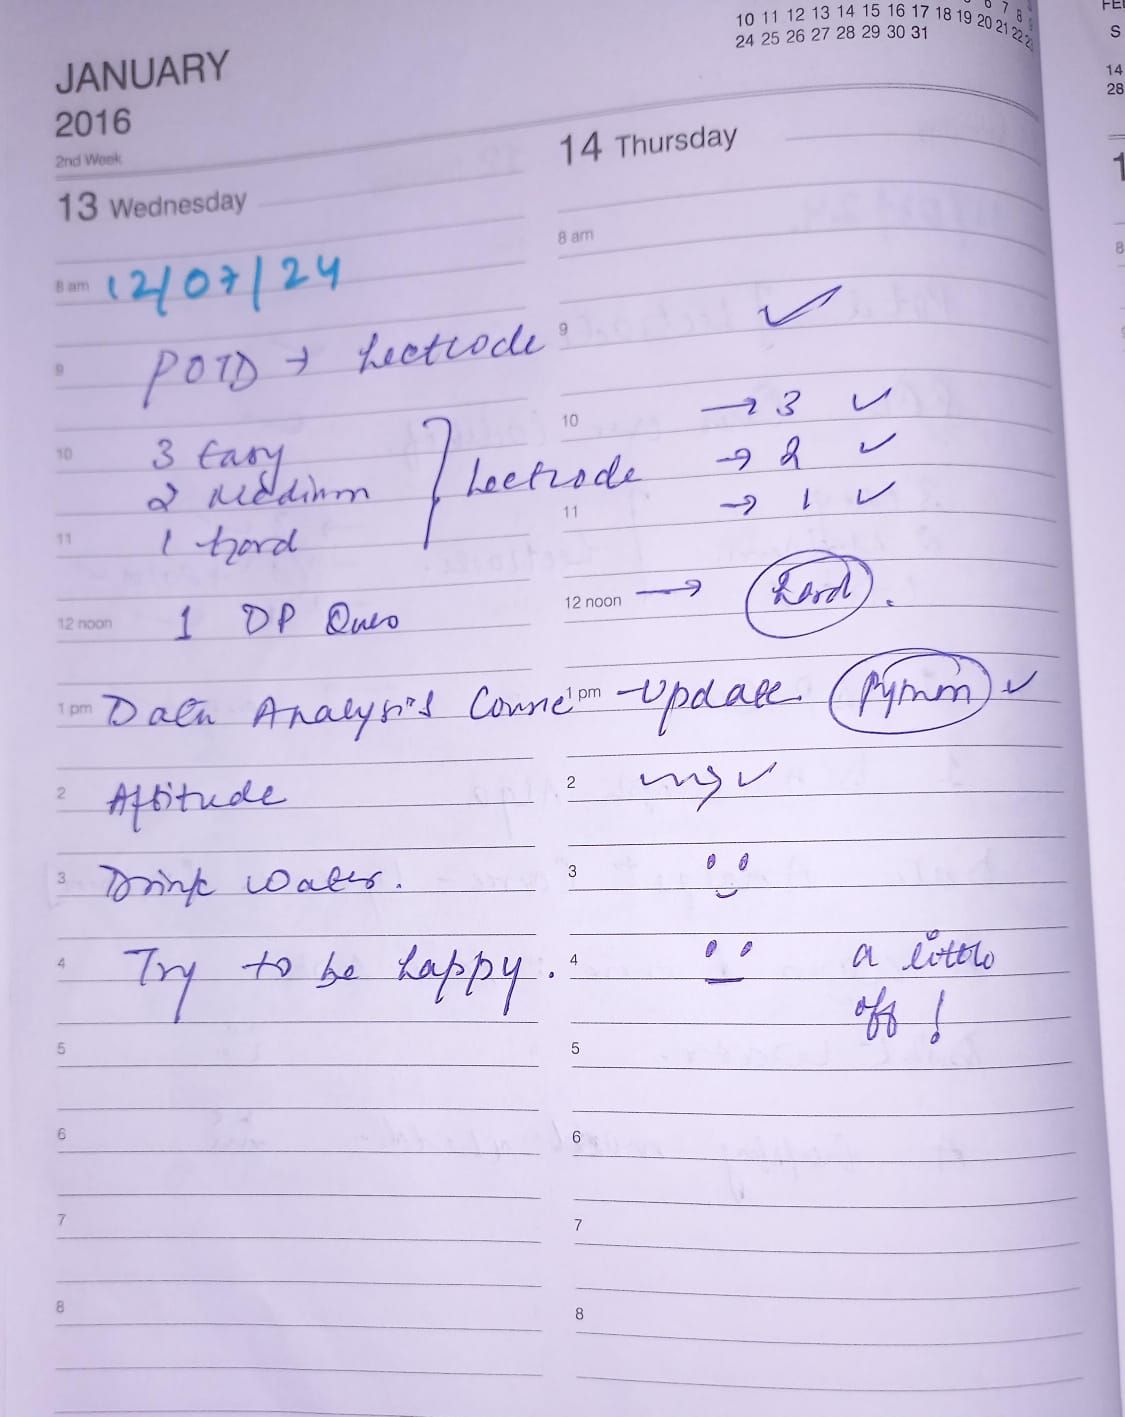 10 11 12 13 14 15 16 17 18 19 20 21 22
24 25 26 27 28 29 30 31
JANUARY
2016
2nd Week
13 Wednesday
14 Thursday
8 am 12/07/24
8 am
9 POTD → Leetcode
9 ✓
10 3 Easy
2 Medium
11 1 Hard
} Leetcode
10 → 3 ✓
→ 2 ✓
11 → 1 ✓
12 noon 1 DP Ques
12 noon → Hard.
1 pm Data Analysis Course
1 pm - Update ✓
2 Aptitude
2 ✓
3 Drink Water.
3
4 Try to be happy.
4 a little
off!
5
5
6
6
7
7
8
8
14
28